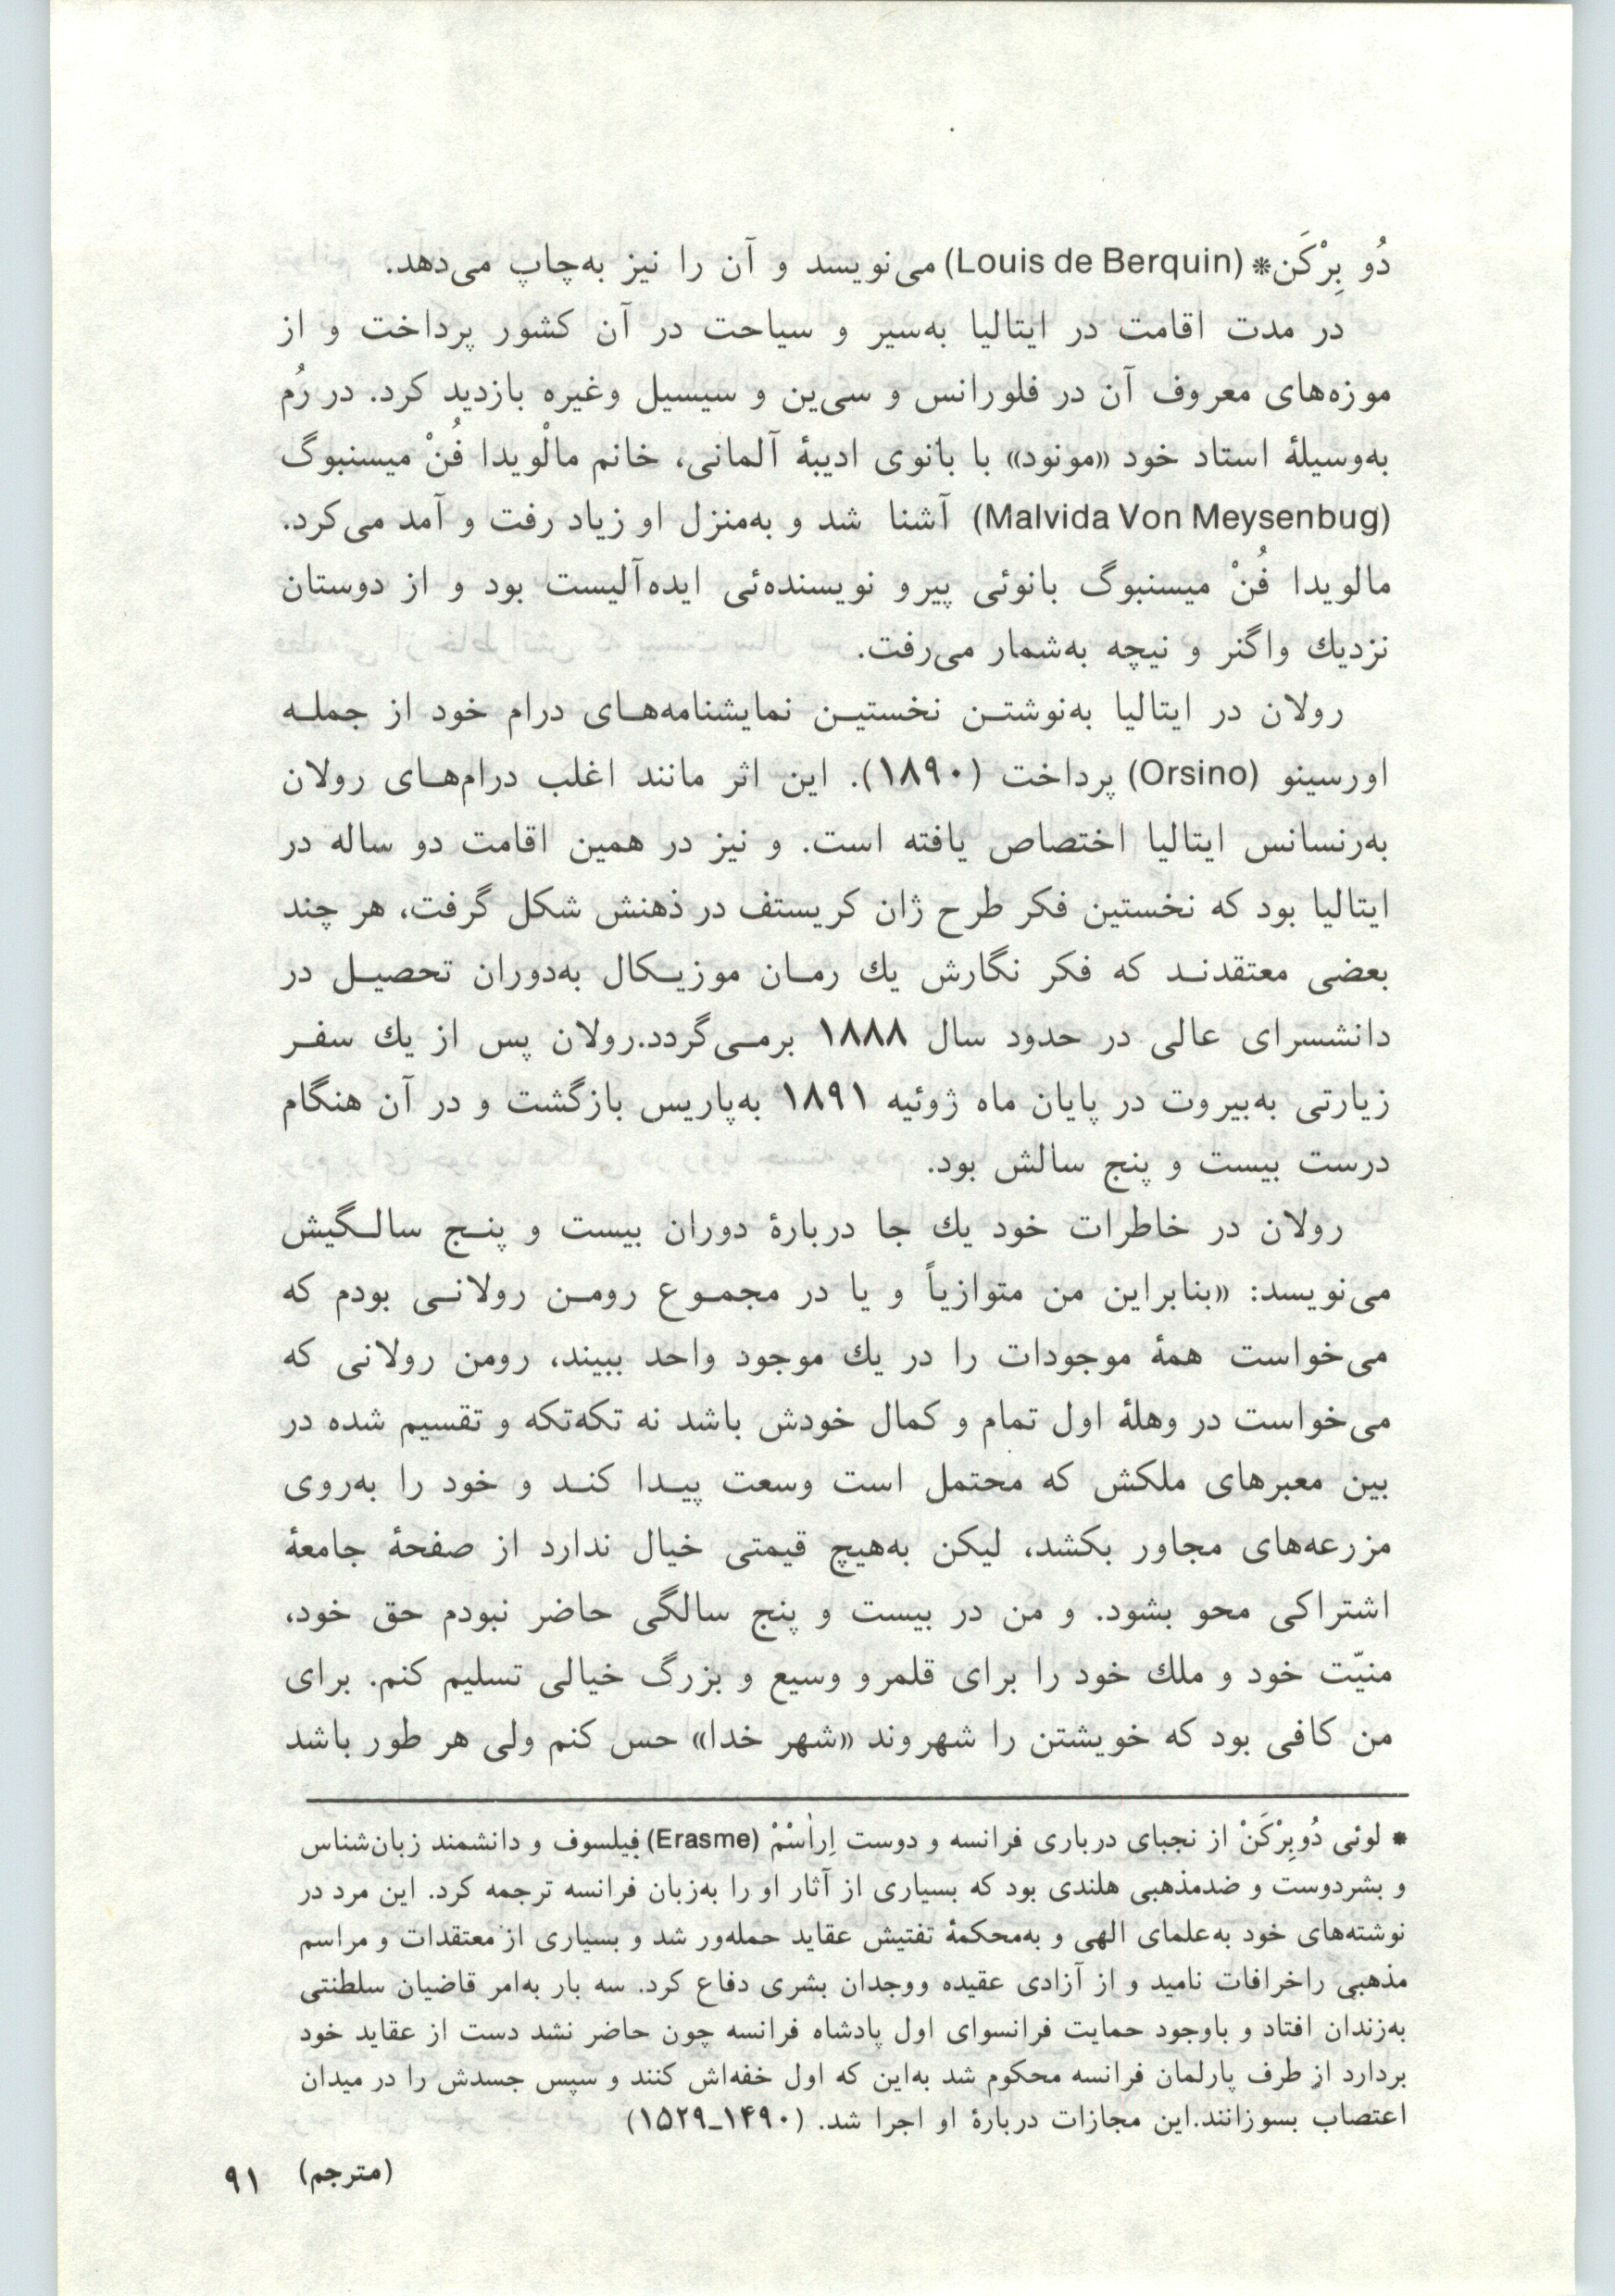 دُو بِرْکَن* (Louis de Berquin) می‌نویسد و آن را نیز به‌چاپ می‌دهد.
در مدت اقامت در ایتالیا به‌سیر و سیاحت در آن کشور پرداخت و از
موزه‌های معروف آن در فلورانس و سی‌ین و سیسیل وغیره بازدید کرد. در رُم
به‌وسیلهٔ استاد خود «مونود» با بانوی ادیبهٔ آلمانی، خانم مالْویدا فُنْ میسنبوگ
(Malvida Von Meysenbug) آشنا شد و به‌منزل او زیاد رفت و آمد می‌کرد.
مالویدا فُنْ میسنبوگ بانوئی پیرو نویسنده‌ئی ایده‌آلیست بود و از دوستان
نزدیك واگنر و نیچه به‌شمار می‌رفت.
رولان در ایتالیا به‌نوشتـن نخستیـن نمایشنامه‌هـای درام خود از جملـه
اورسینو (Orsino) پرداخت (۱۸۹۰). این اثر مانند اغلب درام‌هـای رولان
به‌رنسانس ایتالیا اختصاص یافته است. و نیز در همین اقامت دو ساله در
ایتالیا بود که نخستین فکر طرح ژان کریستف در ذهنش شکل گرفت، هر چند
بعضی معتقدنـد که فکر نگارش یك رمـان موزیـکال به‌دوران تحصیـل در
دانشسرای عالی در حدود سال ۱۸۸۸ برمـی‌گردد.رولان پس از یك سفـر
زیارتی به‌بیروت در پایان ماه ژوئیه ۱۸۹۱ به‌پاریس بازگشت و در آن هنگام
درست بیست و پنج سالش بود.
رولان در خاطرات خود یك جا دربارهٔ دوران بیست و پنـج سالـگیش
می‌نویسد: «بنابراین من متوازیاً و یا در مجمـوع رومـن رولانـی بودم که
می‌خواست همهٔ موجودات را در یك موجود واحد ببیند، رومن رولانی که
می‌خواست در وهلهٔ اول تمام و کمال خودش باشد نه تکه‌تکه و تقسیم شده در
بین معبرهای ملکش که محتمل است وسعت پیـدا کنـد و خود را به‌روی
مزرعه‌های مجاور بکشد، لیکن به‌هیچ قیمتی خیال ندارد از صفحهٔ جامعهٔ
اشتراکی محو بشود. و من در بیست و پنج سالگی حاضر نبودم حق خود،
منیّت خود و ملك خود را برای قلمرو وسیع و بزرگ خیالی تسلیم کنم. برای
من کافی بود که خویشتن را شهروند «شهر خدا» حس کنم ولی هر طور باشد
* لوئی دُوبِرْکَنْ از نجبای درباری فرانسه و دوست اِراسْمْ (Erasme) فیلسوف و دانشمند زبان‌شناس
و بشردوست و ضدمذهبی هلندی بود که بسیاری از آثار او را به‌زبان فرانسه ترجمه کرد. این مرد در
نوشته‌های خود به‌علمای الهی و به‌محکمهٔ تفتیش عقاید حمله‌ور شد و بسیاری از معتقدات و مراسم
مذهبی راخرافات نامید و از آزادی عقیده ووجدان بشری دفاع کرد. سه بار به‌امر قاضیان سلطنتی
به‌زندان افتاد و باوجود حمایت فرانسوای اول پادشاه فرانسه چون حاضر نشد دست از عقاید خود
بردارد از طرف پارلمان فرانسه محکوم شد به‌این که اول خفه‌اش کنند و سپس جسدش را در میدان
اعتصاب بسوزانند.این مجازات دربارهٔ او اجرا شد. (۱۴۹۰ـ۱۵۲۹)
(مترجم) ۹۱